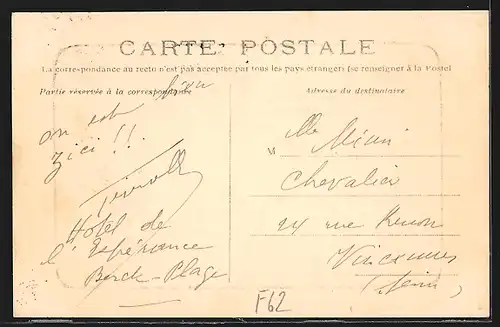 CARTE POSTALE
La correspondance au recto n'est pas acceptée par tous les pays étrangers (se renseigner à la Poste)
Partie réservée à la correspondance
Adresse du destinataire
on est bien
ici !!
Hôtel de
l'Espérance
Berck-Plage
Mlle
M
Chevalier
24 rue
Vincennes
(Seine)
F62